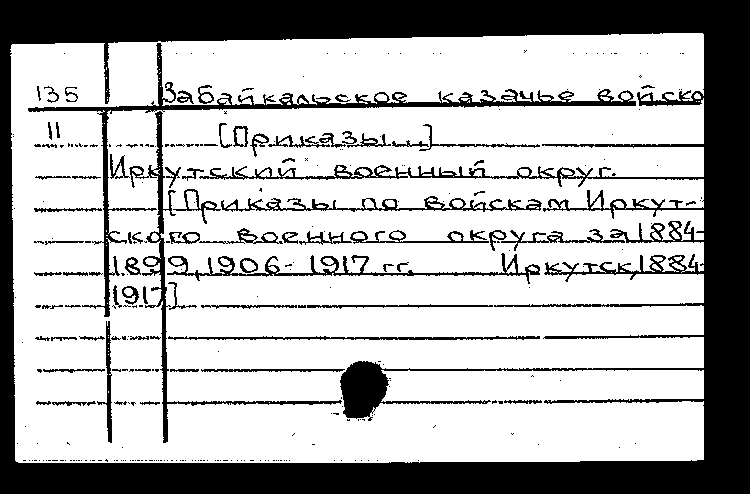 135 Забайкальское казачье войско
11 [Приказы...]
Иркутский военный округ.
[Приказы по войскам Иркут-
ского военного округа за 1884-
1899, 1906-1917 гг. Иркутск, 1884-
1917]